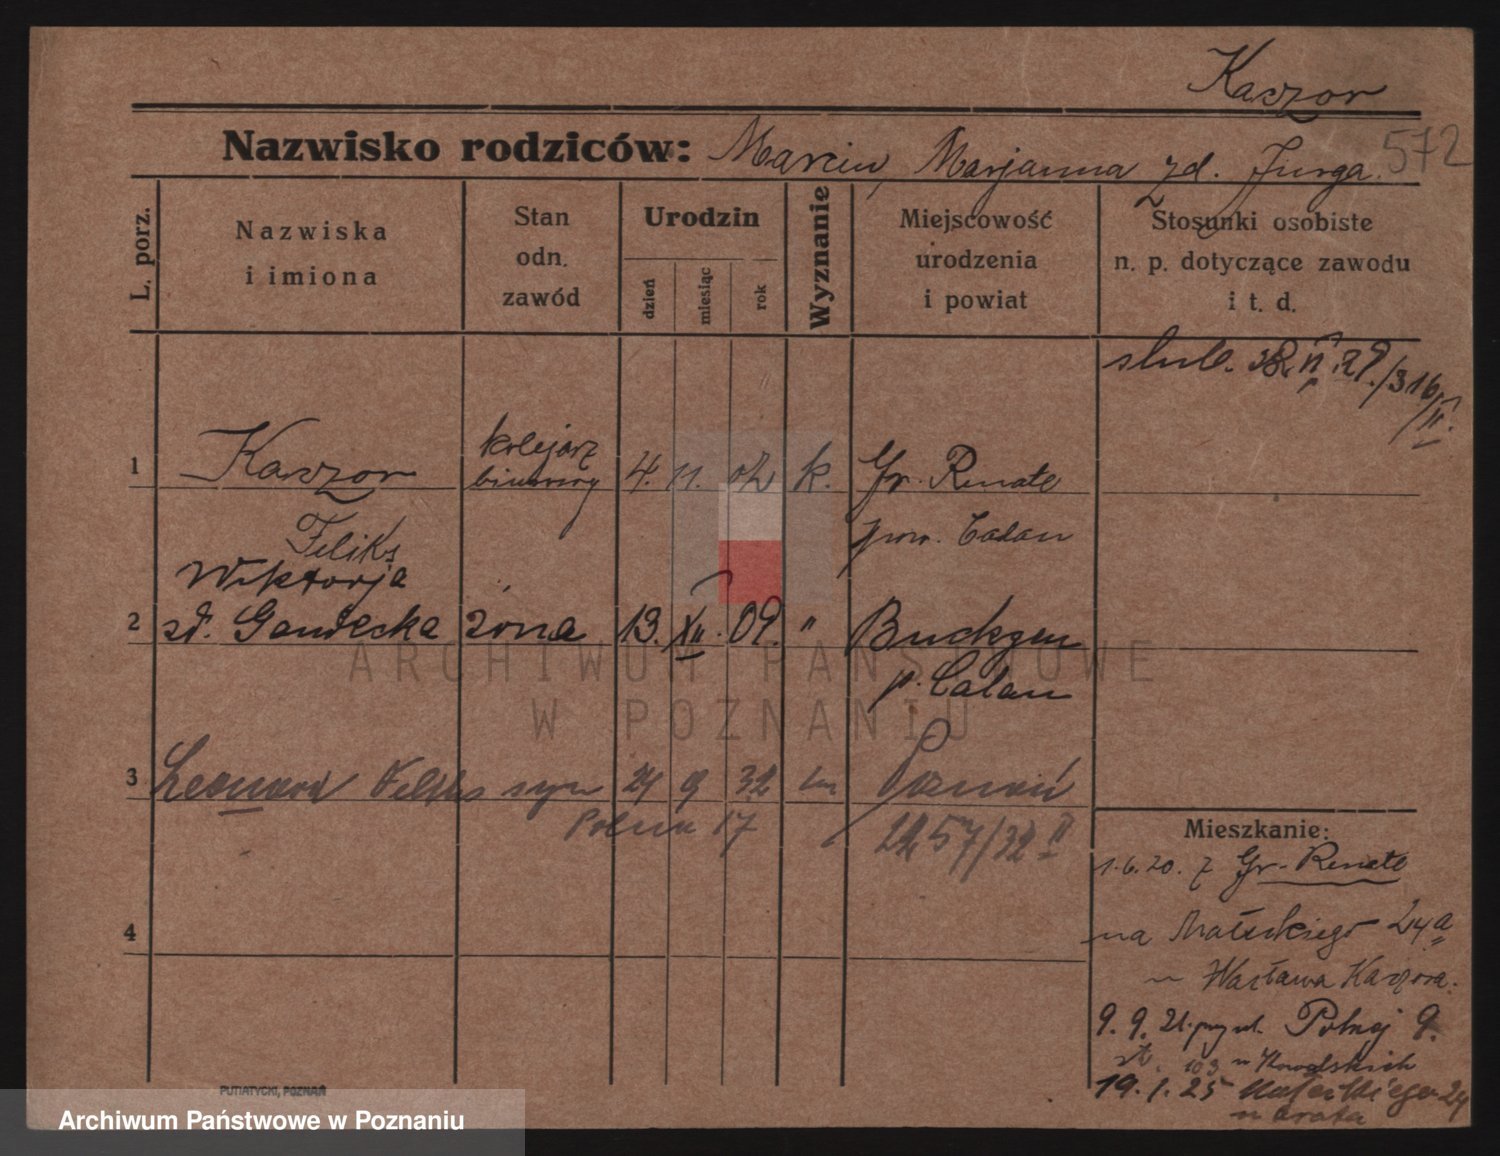 Kaczor
Nazwisko rodziców: Marcin, Marjanna zd. Jurga. 572
L. porz.
Nazwiska
i imiona
Stan
odn.
zawód
Urodzin
dzień
miesiąc
rok
Wyznanie
Miejscowość
urodzenia
i powiat
Stosunki osobiste
n. p. dotyczące zawodu
i t. d.
ślub.
kolejarz
1 Kaczor biurowy 4. 11. 02 k. Gr. Renate
Feliks pow. Calau
Wiktorja
2 zd. Gandecka żona 13. XII. 09. " Buckgen
p. Calau
3 Leonard Feliks syn 24 9 32 Poznań
Polna 17 2257/32 II
4
Mieszkanie:
1.6.20. z Gr. Renate
na Małeckiego 24a
u Wacława Kaczora.
9. 9. 21. przy ul. Polnej 9.
u Kowalskich
19. 1. 25 Małeckiego 24
u brata
PUTIATYCKI, POZNAŃ
ARCHIWUM PAŃSTWOWE
W POZNANIU
Archiwum Państwowe w Poznaniu